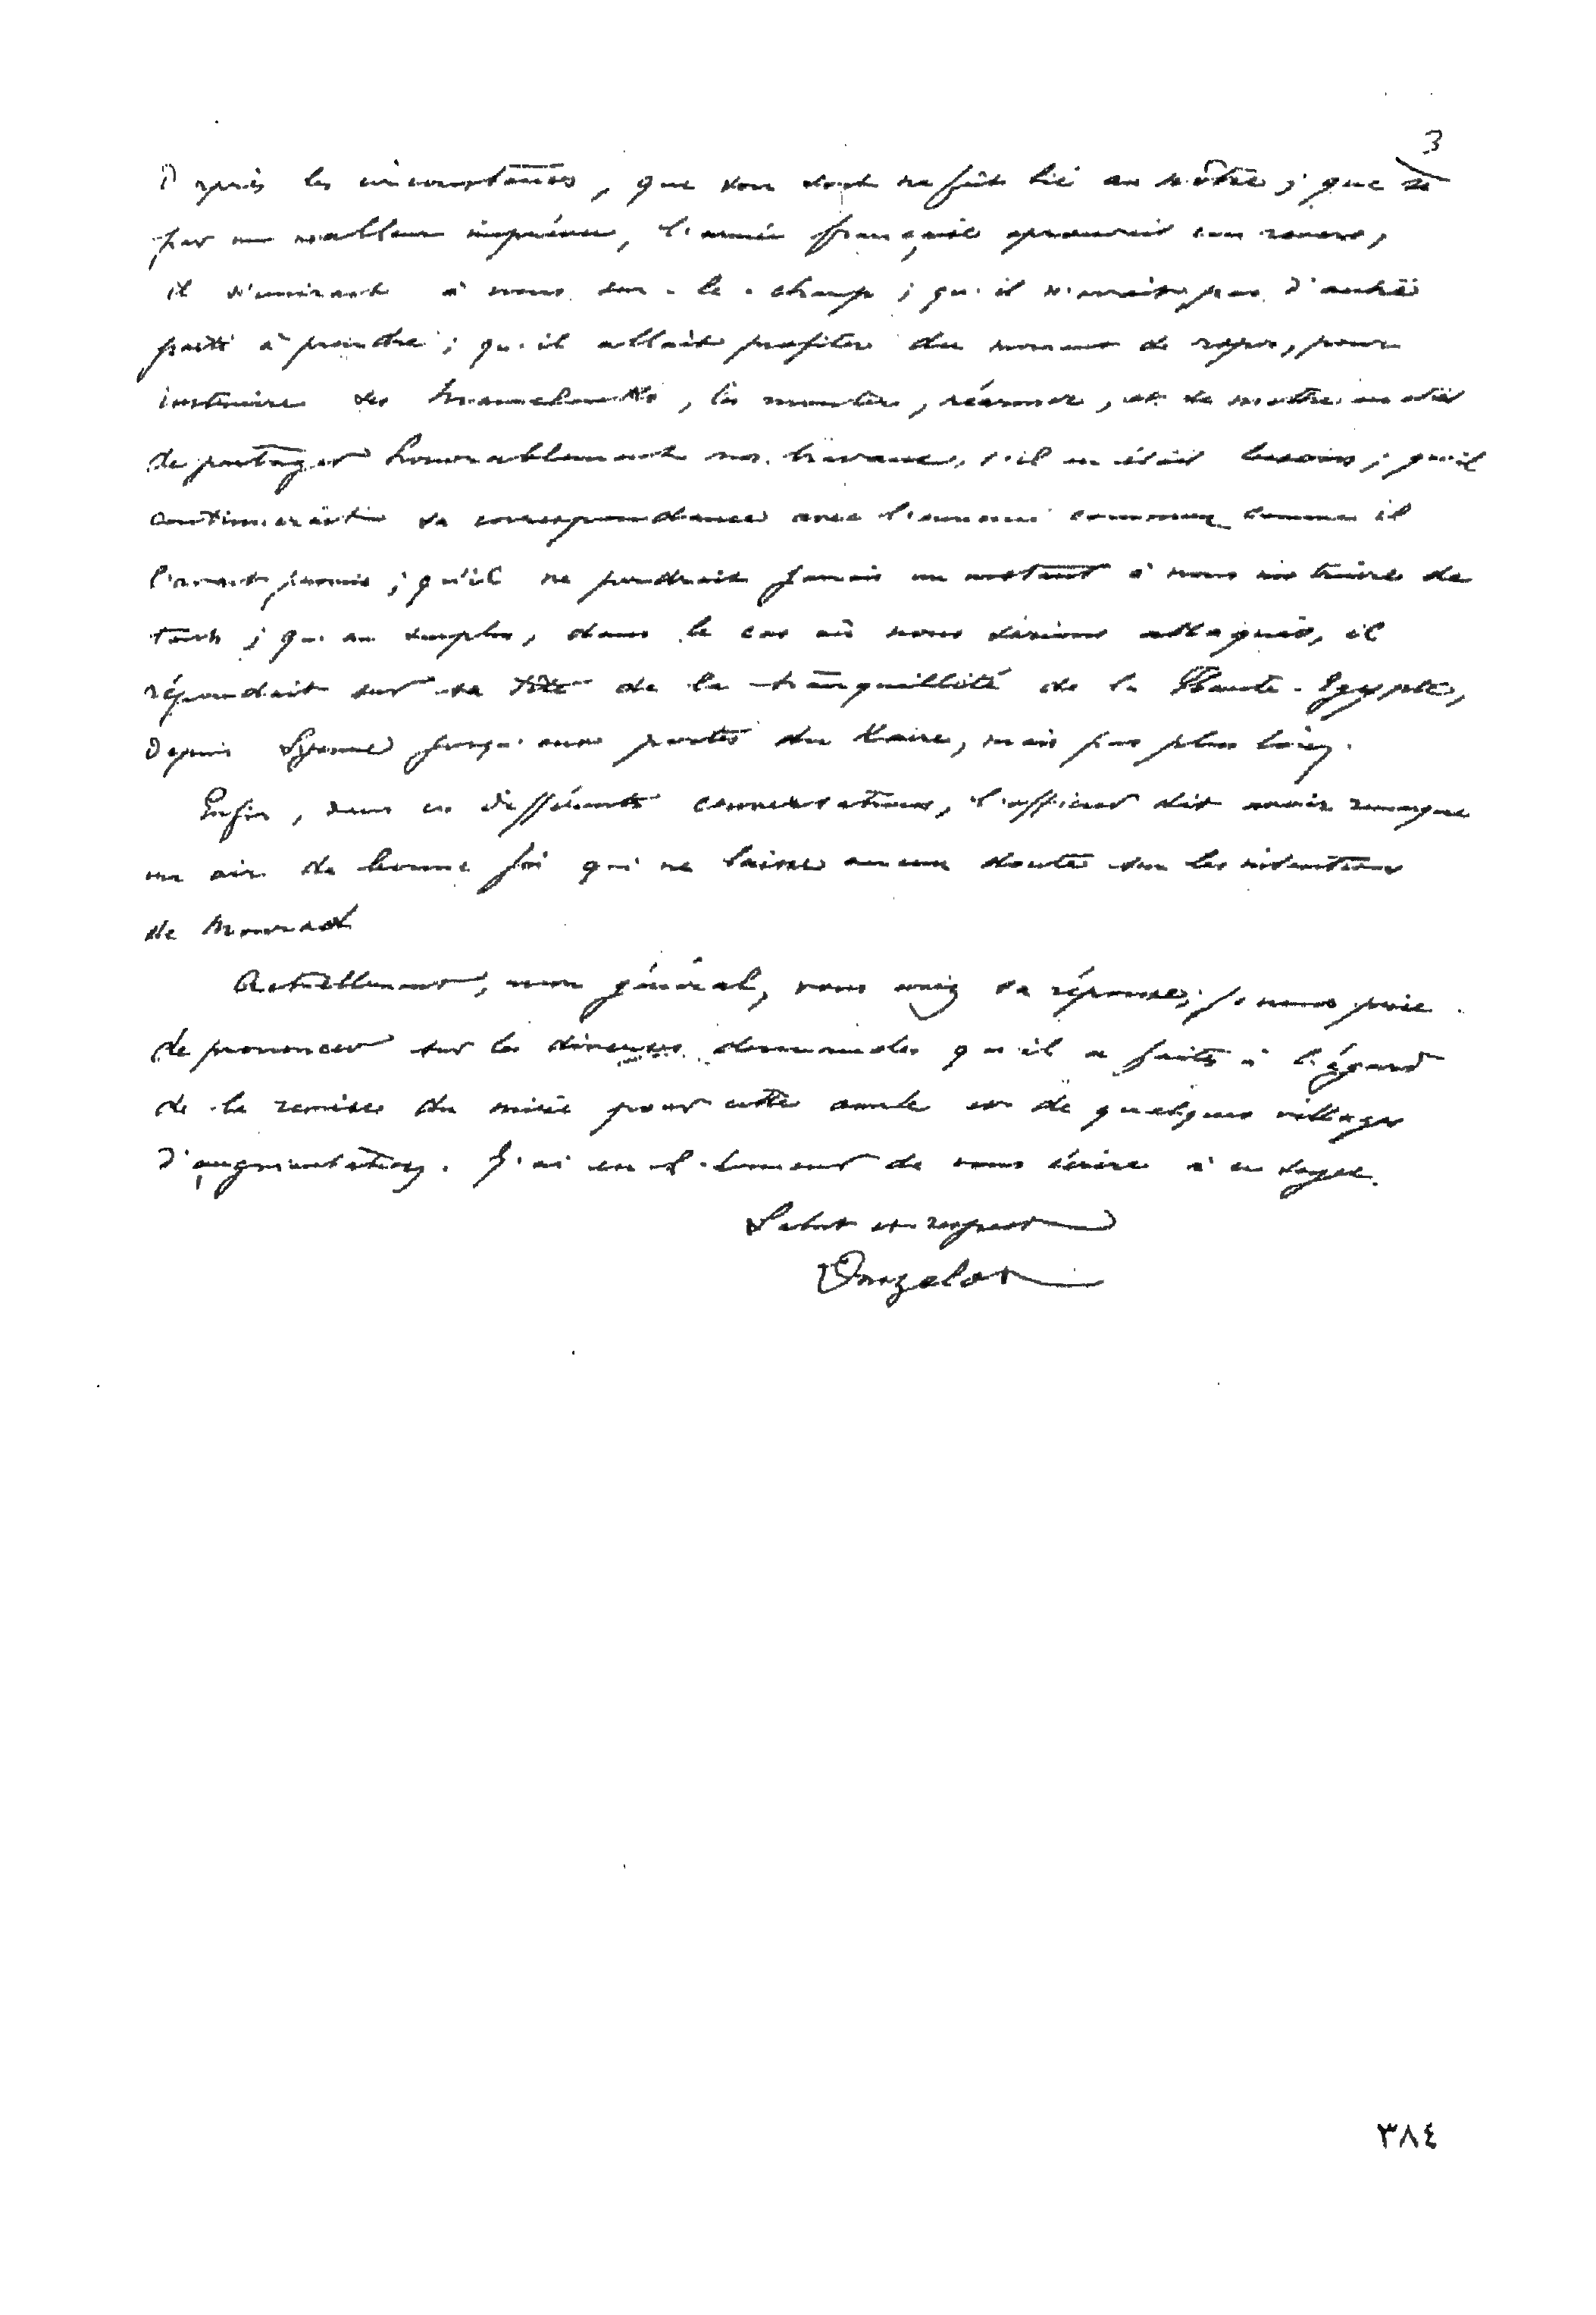 3
D'après les circonstances, que son sort ne fût lié au nôtre ; que si
par un malheur imprévu, l'armée française éprouvait un revers,
il s'unirait à nous sur-le-champ ; qu'il n'avait pas d'autre
parti à prendre ; qu'il allait profiter du moment de repos, pour
instruire des Mamelouks, les monter, réarmer, et se mettre en état
de partager honorablement nos travaux, s'il en était besoin ; qu'il
continuerait sa correspondance avec l'ennemi commun comme il
l'avait promis ; qu'il ne perdrait jamais un instant à nous instruire de
tout ; qu'au surplus, dans le cas où nous serions attaqués, il
répondait sur sa tête de la tranquillité de la Haute-Egypte,
depuis Syenne jusqu'aux portes du Kaire, mais pas plus loin.
Enfin, dans ces différents conversations, l'officier dit avoir remarqué
un air de bonne foi qui ne laisse aucun doute sur les intentions
de Mourad
Actuellement, mon général, vous avez sa réponse ; je vous prie
de prononcer sur les diverses demandes qu'il a faites à l'égard
de la remise du miri pour cette année et de quelques villages
d'augmentation. J'ai eu l'honneur de vous écrire à ce sujet.
Salut et respect
Donzelot
٣٨٤